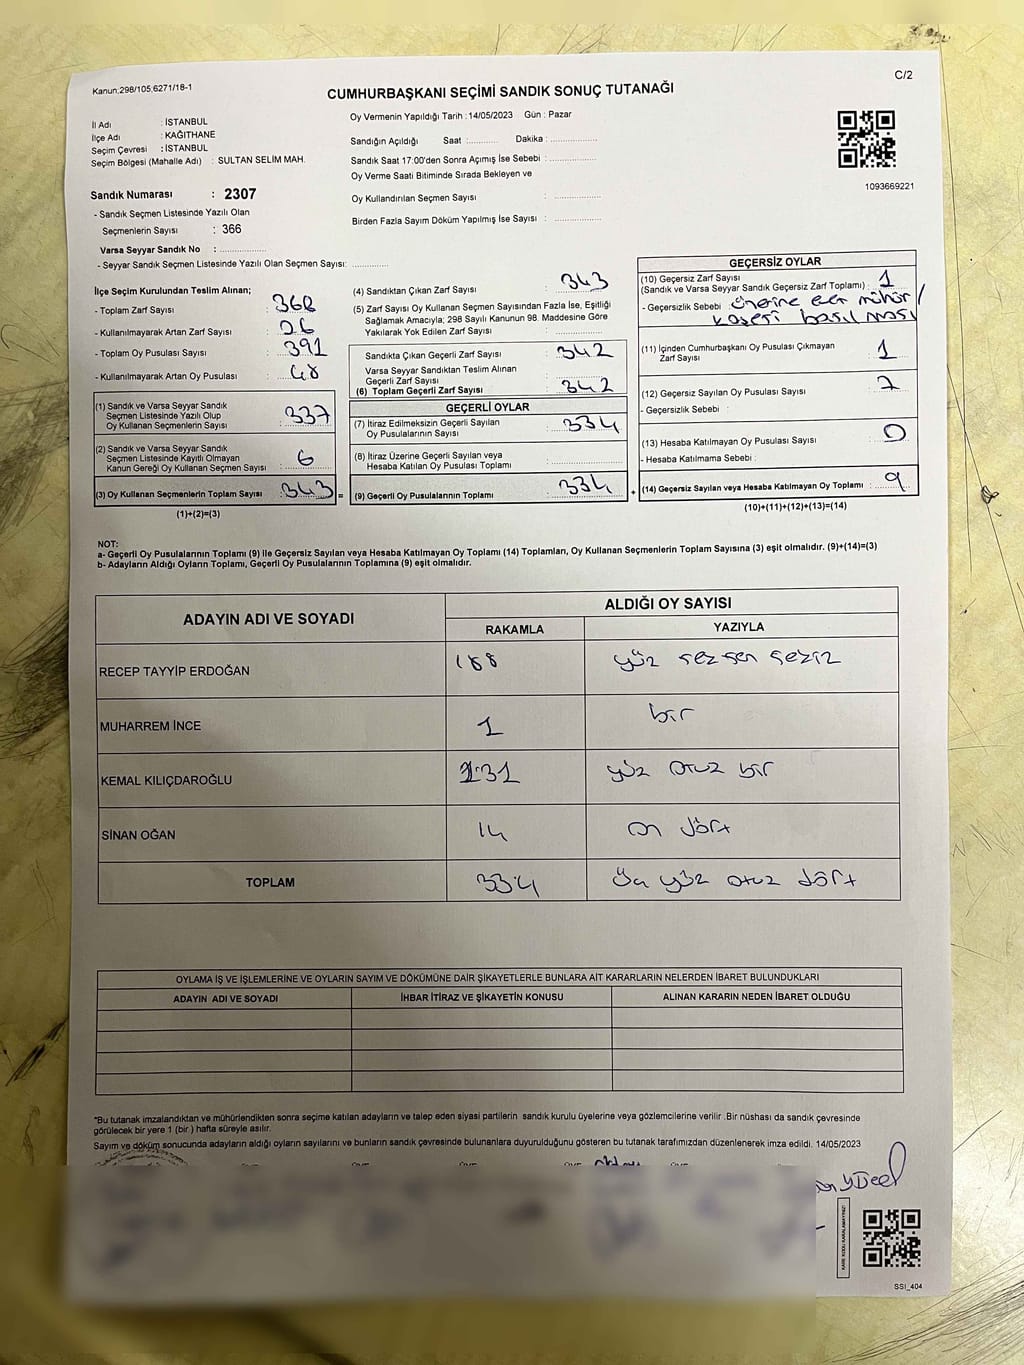 Kanun;298/105;6271/18-1
C/2
CUMHURBAŞKANI SEÇİMİ SANDIK SONUÇ TUTANAĞI
İl Adı : İSTANBUL
İlçe Adı : KAĞITHANE
Seçim Çevresi : İSTANBUL
Seçim Bölgesi (Mahalle Adı) : SULTAN SELİM MAH.
Sandık Numarası : 2307
- Sandık Seçmen Listesinde Yazılı Olan
Seçmenlerin Sayısı : 366
Varsa Seyyar Sandık No : ................
- Seyyar Sandık Seçmen Listesinde Yazılı Olan Seçmen Sayısı: ............
Oy Vermenin Yapıldığı Tarih : 14/05/2023 Gün : Pazar
Sandığın Açıldığı Saat :.......... Dakika : ................
Sandık Saat 17:00'den Sonra Açımış İse Sebebi : ................
Oy Verme Saati Bitiminde Sırada Bekleyen ve
Oy Kullandırılan Seçmen Sayısı : ................
Birden Fazla Sayım Döküm Yapılmış İse Sayısı : ................
1093669221
İlçe Seçim Kurulundan Teslim Alınan;
- Toplam Zarf Sayısı :
- Kullanılmayarak Artan Zarf Sayısı : 26
- Toplam Oy Pusulası Sayısı : 391
- Kullanılmayarak Artan Oy Pusulası : 48
(1) Sandık ve Varsa Seyyar Sandık
Seçmen Listesinde Yazılı Olup
Oy Kullanan Seçmenlerin Sayısı : 337
(2) Sandık ve Varsa Seyyar Sandık
Seçmen Listesinde Kayıtlı Olmayan
Kanun Gereği Oy Kullanan Seçmen Sayısı : 6
(3) Oy Kullanan Seçmenlerin Toplam Sayısı : 343 =
(1)+(2)=(3)
(4) Sandıktan Çıkan Zarf Sayısı : 343
(5) Zarf Sayısı Oy Kullanan Seçmen Sayısından Fazla İse, Eşitliği
Sağlamak Amacıyla; 298 Sayılı Kanunun 98. Maddesine Göre
Yakılarak Yok Edilen Zarf Sayısı : ................
Sandıkta Çıkan Geçerli Zarf Sayısı : 342
Varsa Seyyar Sandıktan Teslim Alınan
Geçerli Zarf Sayısı :
(6) Toplam Geçerli Zarf Sayısı : 342
GEÇERLİ OYLAR
(7) İtiraz Edilmeksizin Geçerli Sayılan
Oy Pusulalarının Sayısı : 334
(8) İtiraz Üzerine Geçerli Sayılan veya
Hesaba Katılan Oy Pusulası Toplamı : ................
(9) Geçerli Oy Pusulalarının Toplamı : 334 +
GEÇERSİZ OYLAR
(10) Geçersiz Zarf Sayısı
(Sandık ve Varsa Seyyar Sandık Geçersiz Zarf Toplamı) : 1
- Geçersizlik Sebebi : üzerine evet mühür/
kaşesi basılması
(11) İçinden Cumhurbaşkanı Oy Pusulası Çıkmayan
Zarf Sayısı : 1
(12) Geçersiz Sayılan Oy Pusulası Sayısı : 7
- Geçersizlik Sebebi :
(13) Hesaba Katılmayan Oy Pusulası Sayısı : 0
- Hesaba Katılmama Sebebi :
(14) Geçersiz Sayılan veya Hesaba Katılmayan Oy Toplamı : 9
(10)+(11)+(12)+(13)=(14)
NOT:
a- Geçerli Oy Pusulalarının Toplamı (9) ile Geçersiz Sayılan veya Hesaba Katılmayan Oy Toplamı (14) Toplamları, Oy Kullanan Seçmenlerin Toplam Sayısına (3) eşit olmalıdır. (9)+(14)=(3)
b- Adayların Aldığı Oyların Toplamı, Geçerli Oy Pusulalarının Toplamına (9) eşit olmalıdır.
ADAYIN ADI VE SOYADI
ALDIĞI OY SAYISI
RAKAMLA YAZIYLA
RECEP TAYYİP ERDOĞAN 188 yüz seksen sekiz
MUHARREM İNCE 1 bir
KEMAL KILIÇDAROĞLU 131 yüz otuz bir
SİNAN OĞAN 14 on dört
TOPLAM 334 üç yüz otuz dört
OYLAMA İŞ VE İŞLEMLERİNE VE OYLARIN SAYIM VE DÖKÜMÜNE DAİR ŞİKAYETLERLE BUNLARA AİT KARARLARIN NELERDEN İBARET BULUNDUKLARI
ADAYIN ADI VE SOYADI İHBAR İTİRAZ VE ŞİKAYETİN KONUSU ALINAN KARARIN NEDEN İBARET OLDUĞU
"Bu tutanak imzalandıktan ve mühürlendikten sonra seçime katılan adayların ve talep eden siyasi partilerin sandık kurulu üyelerine veya gözlemcilerine verilir .Bir nüshası da sandık çevresinde
görülecek bir yere 1 (bir ) hafta süreyle asılır.
Sayım ve döküm sonucunda adayların aldığı oyların sayılarını ve bunların sandık çevresinde bulunanlara duyurulduğunu gösteren bu tutanak tarafımızdan düzenlenerek imza edildi. 14/05/2023
KARE KODU KARALAMAYINIZ!
SSI_404